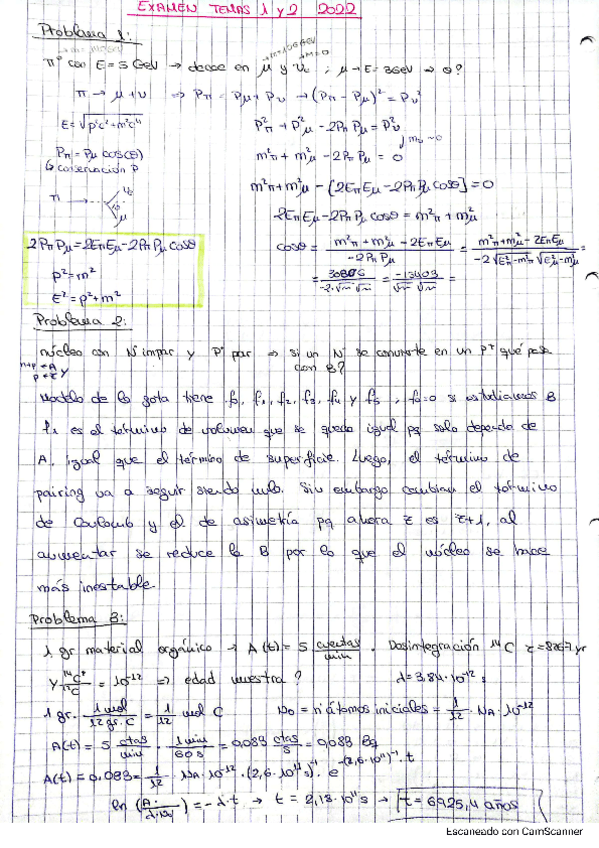 EXAMEN TEMAS 1 y 2 2022
Problema 1:
π⁰ con E = 5 GeV → decae en μ y ν̄ ; μ → E = 3GeV → θ?
π → μ + ν ⇒ Pπ = Pμ + Pν → (Pπ - Pμ)² = Pν²
E = √p²c² + m²c⁴
P²π + P²μ - 2PπPμ = P²ν
Pπ = Pμ cos(θ)
↳ conservación P
m²π + m²μ - 2PπPμ = 0
m²π + m²μ - [2EπEμ - 2PπPμ cosθ] = 0
2EπEμ - 2PπPμ cosθ = m²π + m²μ
2PπPμ = 2EπEμ - 2PπPμ cosθ
p² = m²
E² = p² + m²
cosθ = m²π + m²μ - 2EπEμ / -2PπPμ = m²π + m²μ - 2EπEμ / -2√E²π - m²π √E²μ - m²μ =
Problema 2:
núcleo con N impar y P⁺ par ⇒ si un N se convierte en un P⁺ qué pasa
con B?
Modelo de la gota tiene f₀, f₁, f₂, f₃, f₄ y f₅ , f₀=0 si estudiamos B
f₁ es el término de volumen que se queda igual pq solo depende de
A, igual que el término de superficie. Luego, el término de
pairing va a seguir siendo nulo. Sin embargo cambian el término
de Coulomb y el de asimetría pq ahora z es z+1, al
aumentar se reduce la B por lo que el núcleo se hace
más inestable.
Problema 3:
1 gr material orgánico → A(t) = 5 cuentas/min . Desintegración ¹⁴C τ = 8267 yr
y ¹⁴C/¹²C = 10⁻¹² ⇒ edad muestra? λ = 3.84·10⁻¹² s
1 gr. 1 mol/12 gr. C = 1/12 mol C N₀ = nº átomos iniciales = 1/12 · NA · 10⁻¹²
A(t) = 5 ctas/min · 1 min/60 s = 0,083 ctas/s = 0,083 Bq
A(t) = 0,083 = 1/12 · NA · 10⁻¹² · (2,6·10¹¹ s)⁻¹ · e^-(2,6·10¹¹)⁻¹·t
ln (A/λ·N₀) = -λ·t → t = 2,18·10¹¹ s → t = 6925,4 años
Escaneado con CamScanner